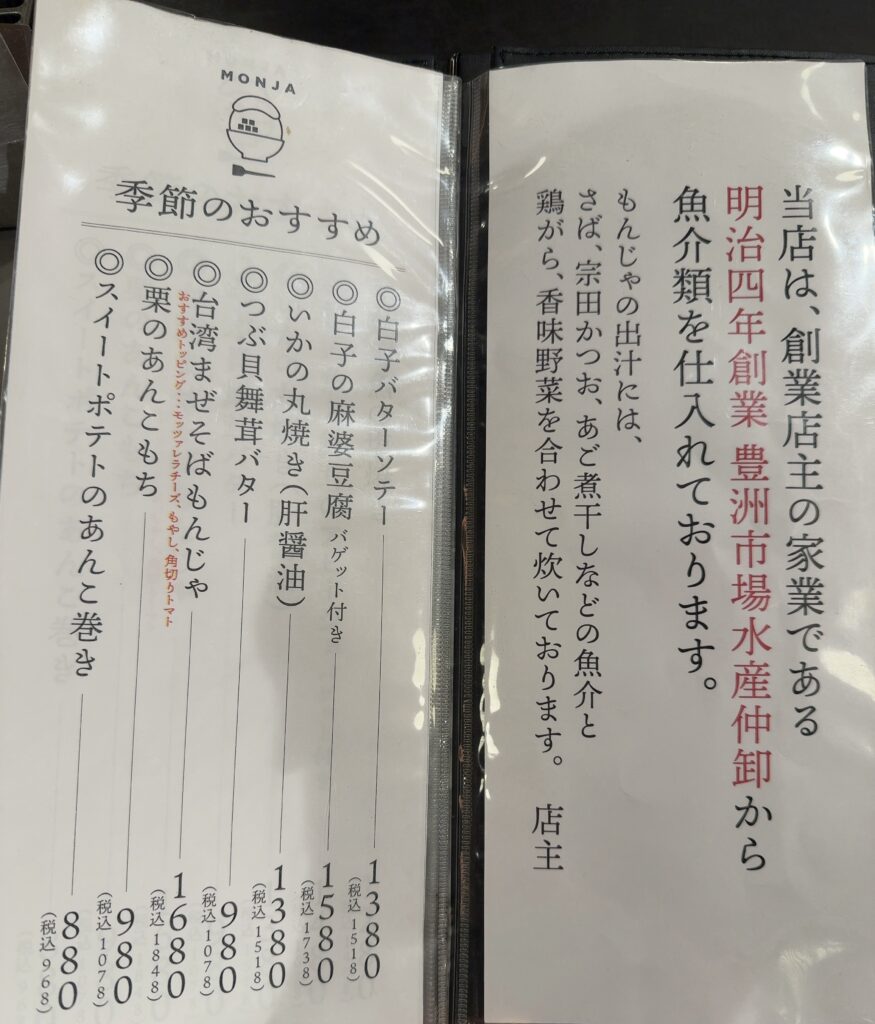 当店は、創業店主の家業である
明治四年創業 豊洲市場水産仲卸から
魚介類を仕入れております。
もんじゃの出汁には、
さば、宗田かつお、あご煮干しなどの魚介と
鶏がら、香味野菜を合わせて炊いております。 店主
MONJA
季節のおすすめ
◎白子バターソテー 1380
(税込1518)
◎白子の麻婆豆腐 バゲット付き 1580
(税込1738)
◎いかの丸焼き(肝醤油) 1380
(税込1518)
◎つぶ貝舞茸バター 980
(税込1078)
◎台湾まぜそばもんじゃ 1680
(税込1848)
おすすめトッピング…モッツァレラチーズ、もやし、角切りトマト
◎栗のあんこもち 980
(税込1078)
◎スイートポテトのあんこ巻き 880
(税込968)